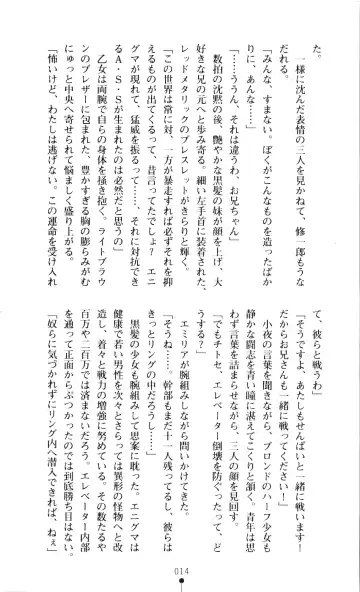 た。
　一様に沈んだ表情の三人を見かねて、修一郎もうな
だれる。
「みんな、すまない。ぼくがこんなものを造ったばか
りに、あんな……」
「……ううん、それは違うわ、お兄ちゃん」
　数拍の沈黙の後、艶やかな黒髪の妹が顔を上げ、大
好きな兄の元へと歩み寄る。細い左手首に装着された、
レッドメタリックのブレスレットがきらりと輝く。
「この世界は常に対、一方が暴走すれば必ずそれを抑
えるものが出てくるって、昔言ってたでしょ？　エニ
グマが、猛威を振るって……それに対抗でき
るＡ・Ｓ・Ｓが生まれたのは必然だと思うの」
　乙女は両腕で自らの身体を掻き抱く。ライトブラウ
ンのブレザーに包まれた、豊かすぎる胸の膨らみがむ
にゅっと中央へ寄せられて悩ましく盛り上がる。
「怖いけど、わたしは逃げない。この運命を受け入れ
て、彼らと戦うわ」
「そうですよ、あたしもせんぱいと一緒に戦います！
だからお兄さんも一緒に戦ってください！」
　小夜の言葉を聞きながら、ブロンドのハーフ少女も
静かな闘志を青い瞳に湛えてこくりと頷く。青年は思
わず言葉を詰まらせながら、三人の顔を見回す。
「でもチトセ、エレベーター倒壊を防ぐったって、ど
うする？」
　エミリアが腕組みしながら問いかけてきた。
「そうね……。幹部もまだ十一人残ってるし、彼らは
きっとリングの中だろうし……」
　黒髪の少女も腕組みして思案に耽った。エニグマは
健康で若い男性を次々とさらっては異形の怪物へと改
造し、着々と戦力の増強に努めている。その数たるや
百万や二百万では済まないだろう。エレベーター内部
を通って正面からぶつかったのでは到底勝ち目はない。
「奴らに気づかれずにリング内へ潜入できれば、ねぇ」
014